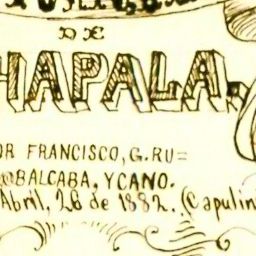 DE
HAPALA.
OR FRANCISCO, G. RU=
BALCABA, Y CANO.
Abril, 26 de 1882. (Capulin